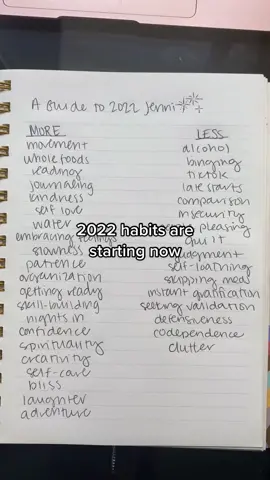 A Guide to 2022 Jenni
MORE
movement
whole foods
reading
journaling
kindness
self love
water
embracing feelings
slowness
patience
organization
getting ready
skill-building
nights in
confidence
spirituality
creativity
self-care
bliss
laughter
adventure
LESS
alcohol
binging
tiktok
late starts
comparison
insecurity
pleasing
guilt
judgment
self-loathing
skipping meds
instant gratification
seeking validation
defensiveness
codependence
clutter
2022 habits are
starting now